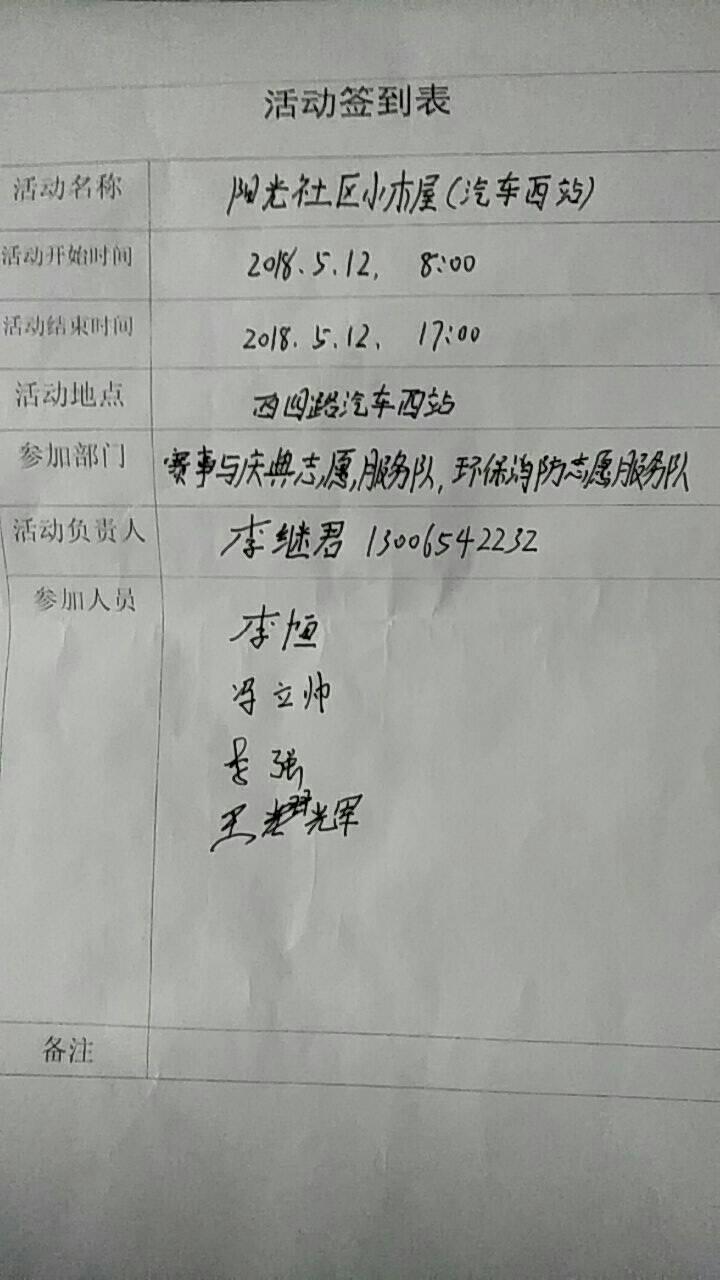 活动签到表
活动名称 阳光社区小木屋(汽车西站)
活动开始时间 2018.5.12, 8:00
活动结束时间 2018.5.12, 17:00
活动地点 西四路汽车西站
参加部门 赛事与庆典志愿服务队, 环保消防志愿服务队
活动负责人 李继君 13006542232
参加人员
李恒
冯立帅
李强
王 光军
备注